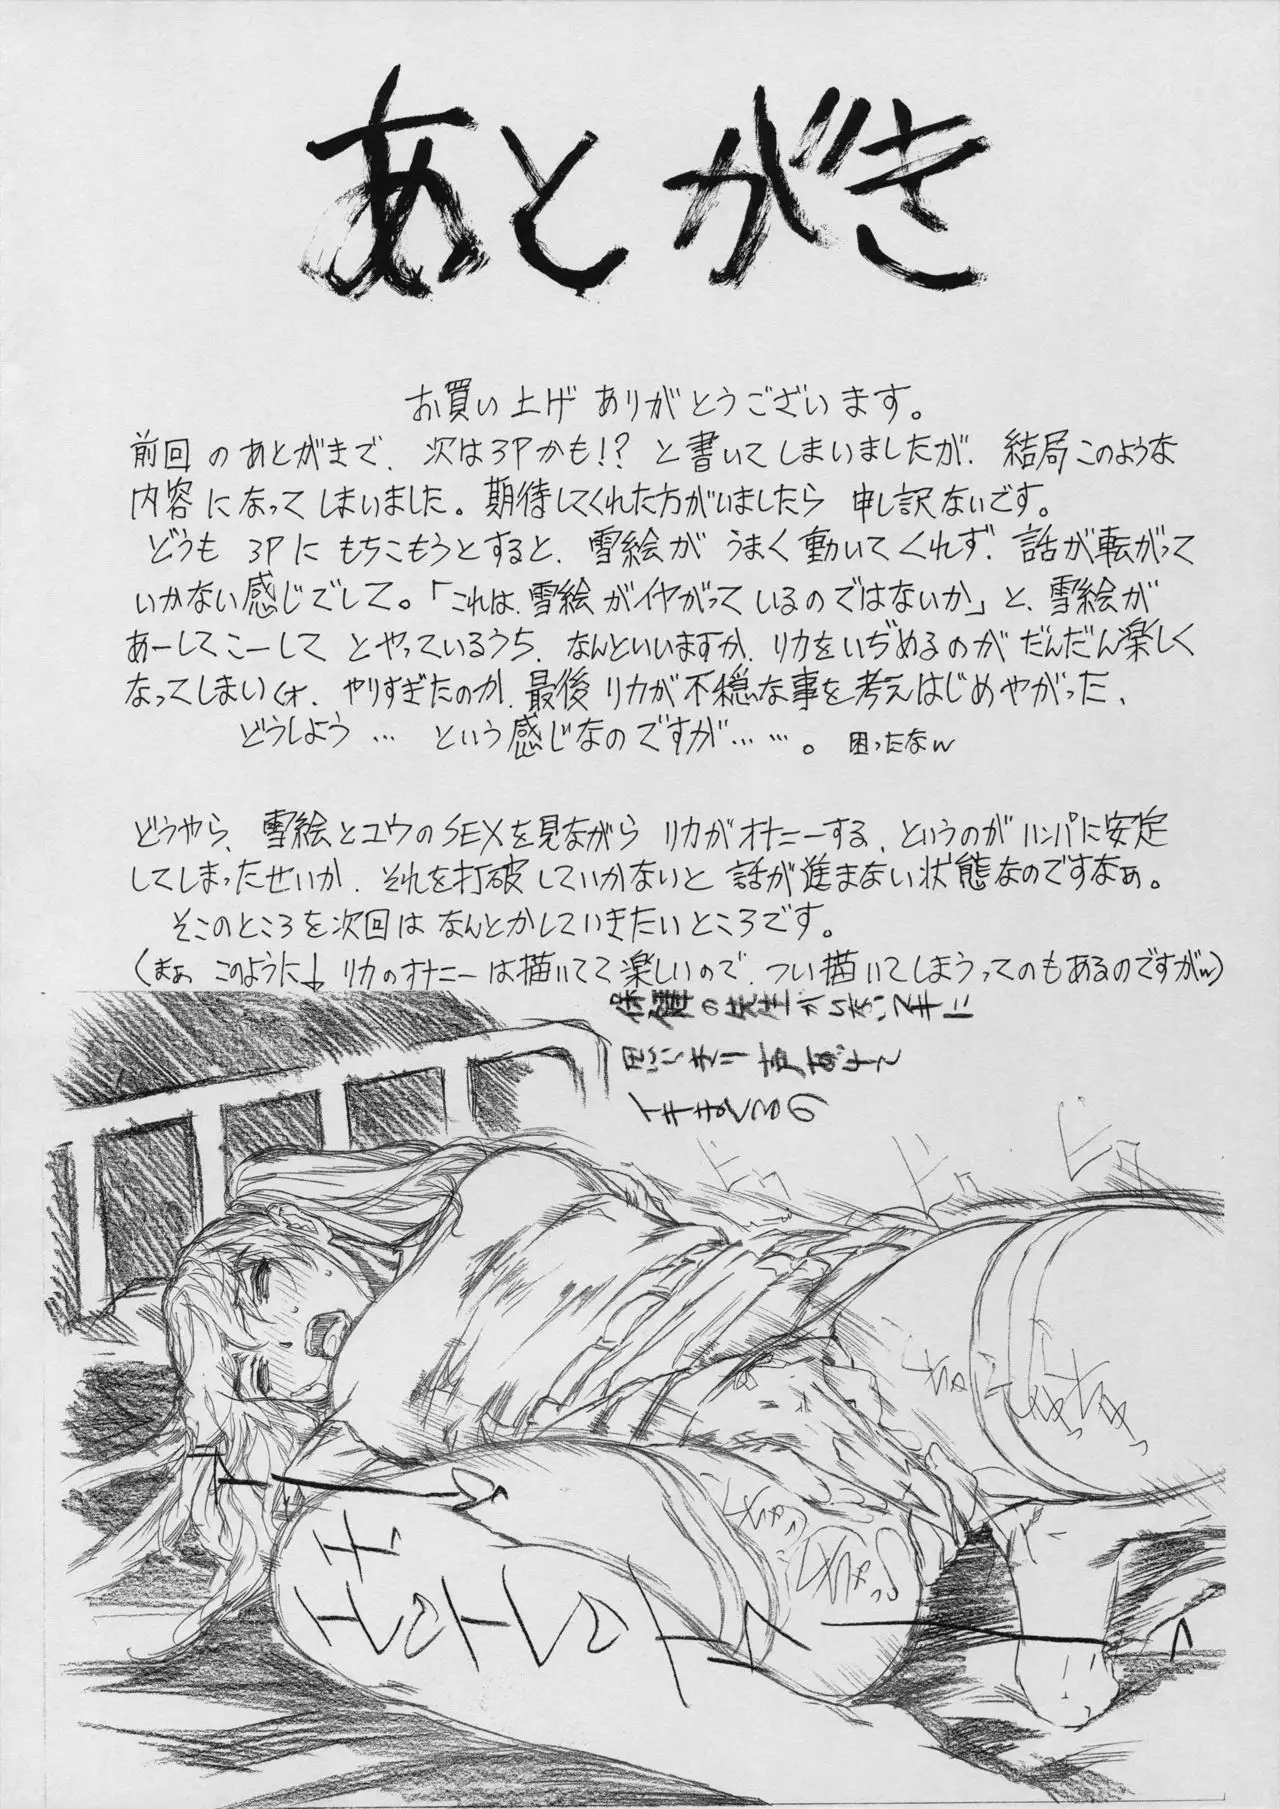 あとがき
お買い上げありがとうございます。
前回のあとがきで、次は3Pかも!? と書いてしまいましたが、結局このような
内容になってしまいました。期待してくれた方がいましたら 申し訳ないです。
どうも 3Pに もちこもうとすると、雪絵が うまく動いてくれず、話が転がって
いかない感じでして。「これは、雪絵がイヤがっているのではないか」と、雪絵が
あーしてこーして とやっているうち、なんといいますか、リカをいぢめるのが だんだん楽しく
なってしまい(オ、やりすぎたのか、最後 リカが不穏な事を考えはじめやがった、
どうしよう… という感じなのですが……。 困ったなw
どうやら、雪絵とユウのSEXを見ながら リカがオナニーする、というのがハンパに安定
してしまったせいか、それを打破していかないと 話が進まない状態なのですなぁ。
そこのところを次回は なんとかしていきたいところです。
(まぁ このように↓ リカのオナニーは描いてて楽しいので、つい描いてしまうってのもあるのですがw)
保健の先生がいないスキに
思いきり声あげ
ビク
ビク
ビク